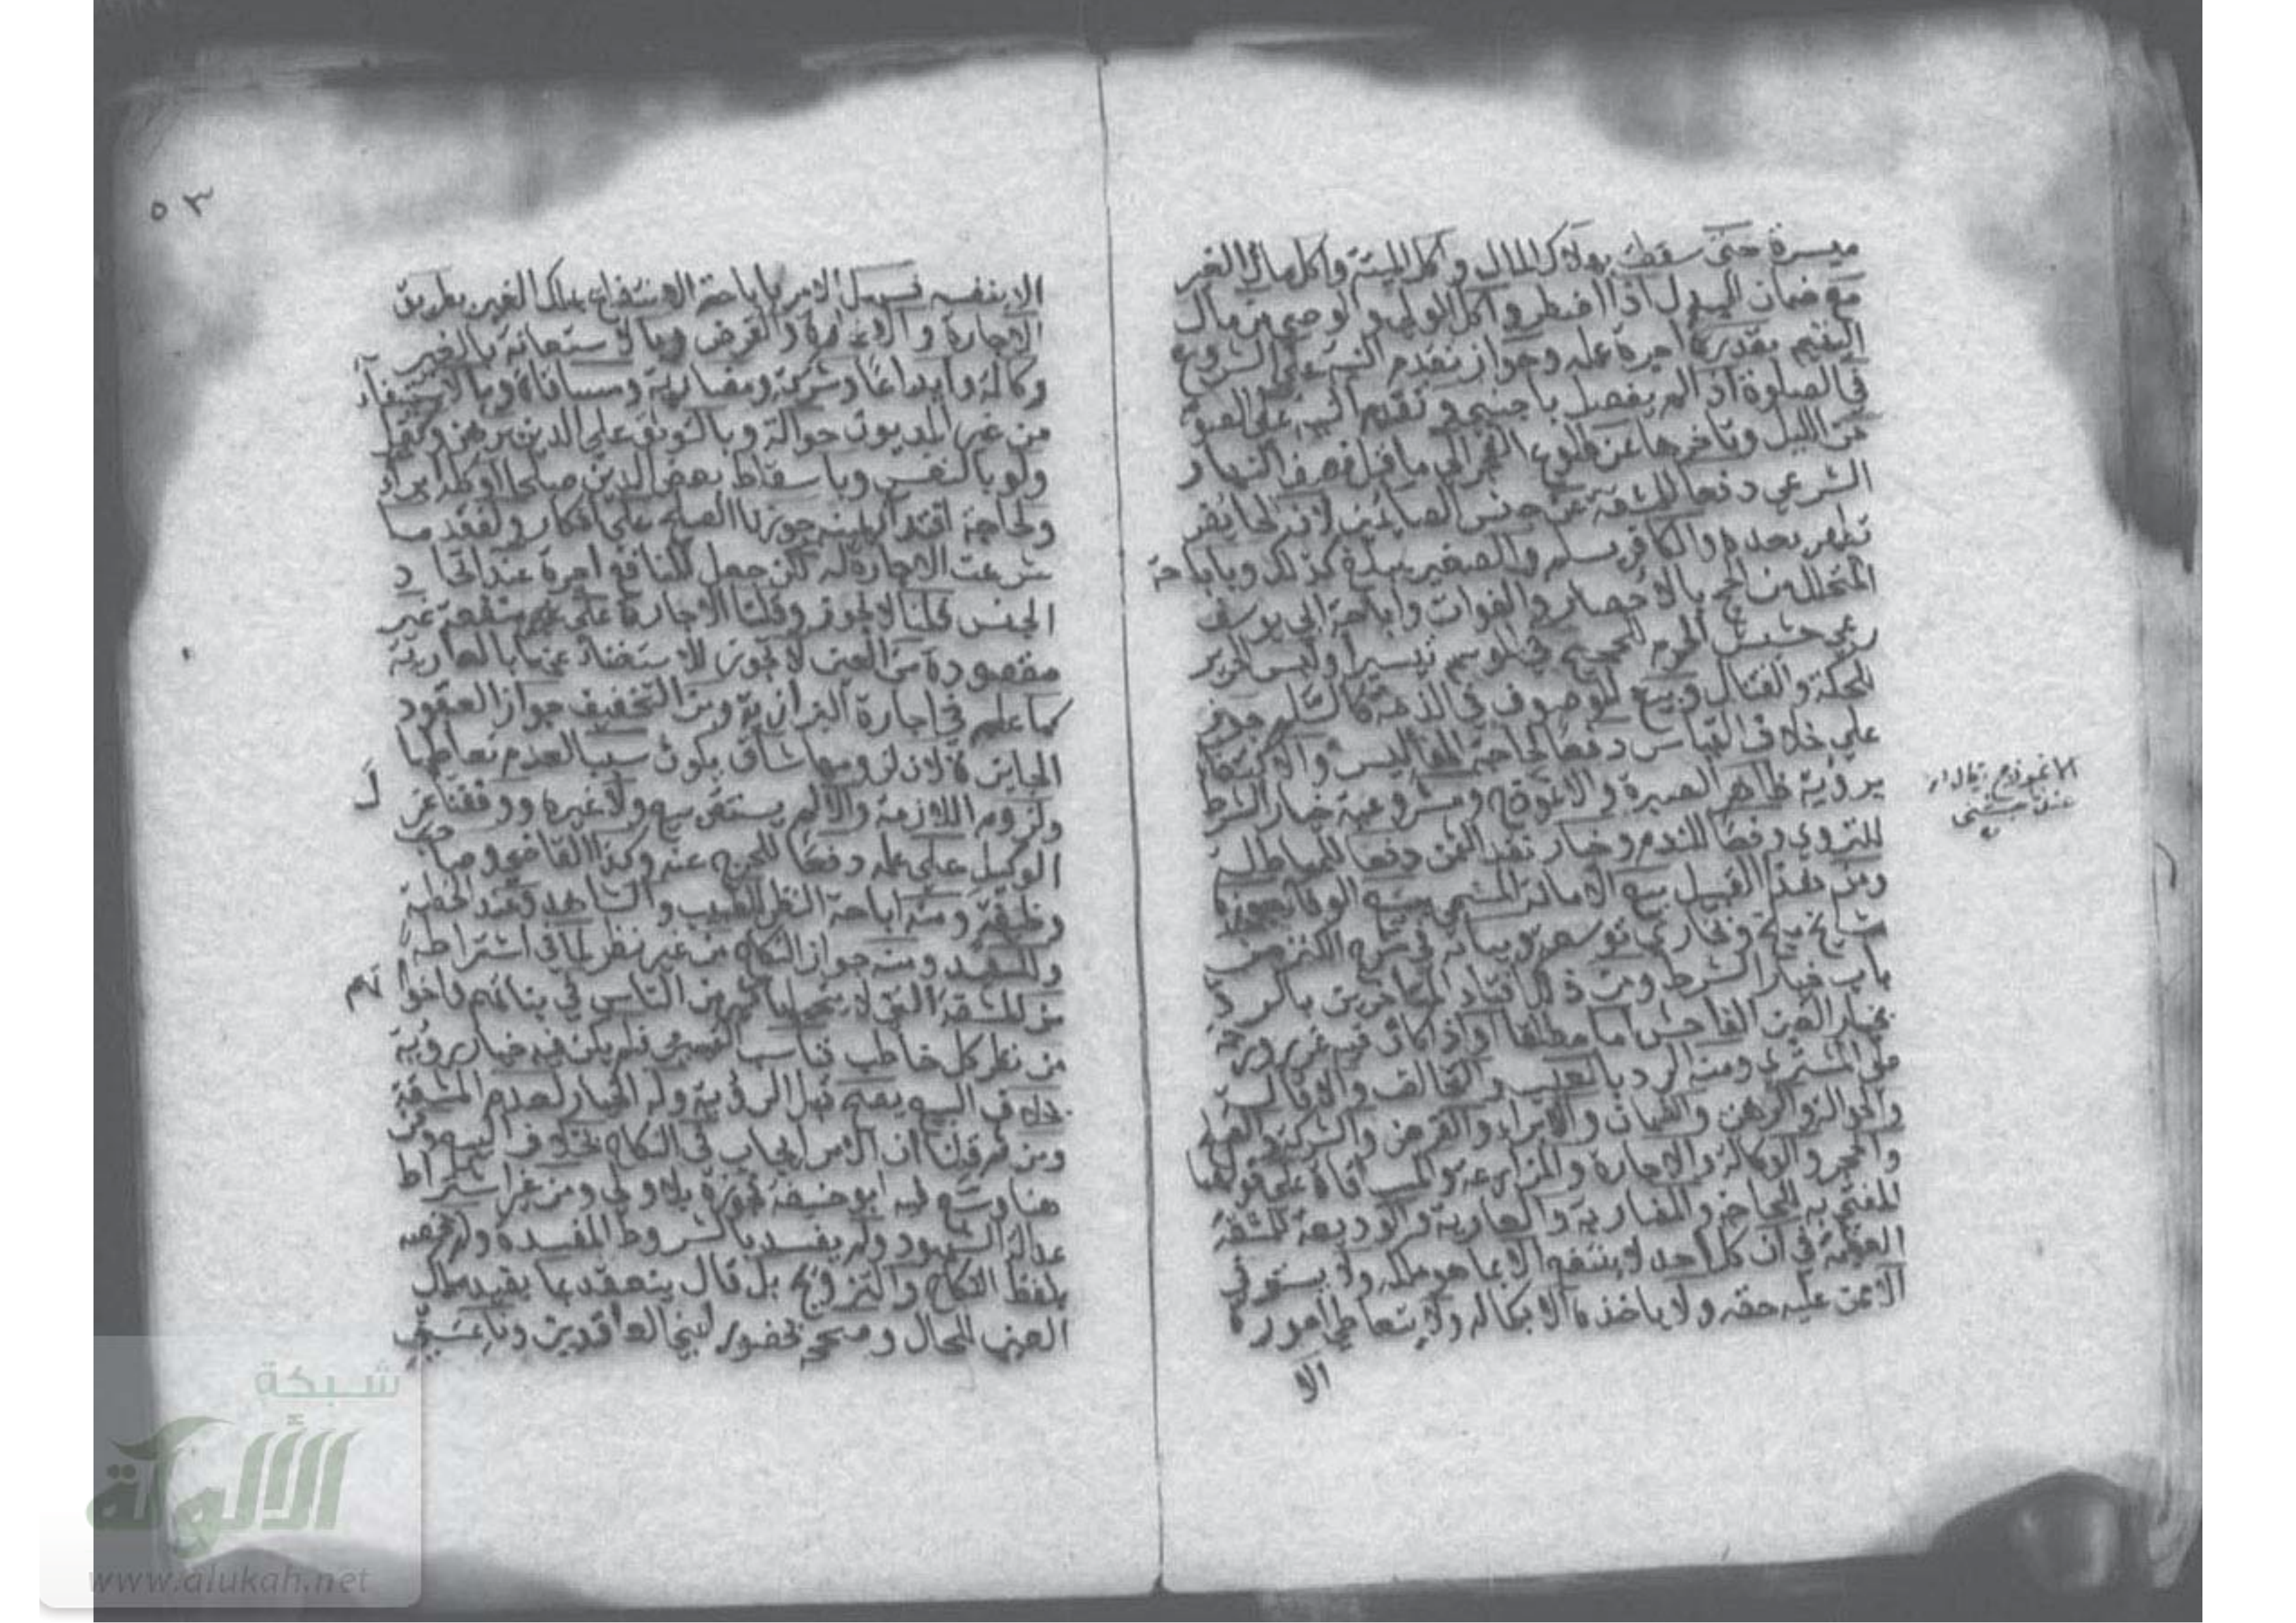 ميسرة حتى سقطت بهلاك المال وأكل الميتة وأكل مال الغير
مع ضمان البدل اذا اضطر وأكل الولي والوصي من مال
اليتيم بقدر أجرة عمله وجواز تقدم النية على الشروع
في الصلوة اذا لم يفصل باجنبي وتقديم النية على الصوم
من الليل وتاخرها عن طلوع الفجر الى ما قبل نصف النهار
الشرعي دفعا للمشقة عن جنس الصائمين لان الحائض
تطهر بعده والكافر يسلم والصغير يبلغ كذلك وباباحة
التحلل من الحج بالاحصار والفوات واباحة ابي يوسف
رعي حشيش الحرم للحجيج في الموسم تيسيرا ولبس الحرير
للحكة والقتال وبيع الموصوف في الذمة كالسلم جوز
على خلاف القياس دفعا لحاجة المفاليس والاكتفا
برؤية ظاهر الصبرة والانموذج ومشروعية خيار الشرط
للتروي دفعا للندم وخيار نقد الثمن دفعا للمماطلة
ومن هذا القبيل بيع الامانة المسمى ببيع الوفا جوزه
مشايخ بلخ وبخارى توسعة وبيانه في شرح الكنز من
باب خيار الشرط ومن ذلك افتاء المتاخرين بالرد
بخيار الغبن الفاحش اما مطلقا او اذا كان فيه غرور رحمة
على المشتري ومنه الرد بالعيب والتحالف والاقالة
والحوالة والرهن والضمان والابراء والقرض والشركة والصلح
والحجر والوكالة والاجارة والمزارعة والمساقاة على قولهما
المفتى به للحاجة والمضاربة والعارية والوديعة للمشقة
العظيمة في ان كل احد لا ينتفع الا بما هو ملكه ولا يستوفي
الا ممن عليه حقه ولا ياخذه الا بكماله ولا يتعاطى اموره
الا
الانموذج يقال له
عندنا
٥٣
الا بنفسه فسهل الامر باباحة الانتفاع بملك الغير بطريق
الاجارة والاعارة والقرض وبالاستعانة بالغير
وكالة وايداعا وشركة ومضاربة ومساقاة وبالاستيفآء
من غير المديون حوالة وبالتوثق على الدين برهن وكفيل
ولو بالنفس وباسقاط بعض الدين صلحا او كله ابراء
ولحاجة افتداء يمينه جوزنا الصلح على انكار ولفقد ما
شرعت الاجارة له لكن جعل للمنافع اجرة عند اتحاد
الجنس قلنا لا يجوز وقلنا الاجارة على منفعة غير
مقصودة من العين لا تجوز للاستغناء عنها بالعارية
كما علم في اجارة البزازية ومن التخفيف جواز العقود
الجايزة لان لزومها شاق يكون سببا لعدم تعاطيها
ولزوم اللازمة والا لم يستقر بيع ولا غيره ووقفنا عزل
الوكيل على علمه دفعا للحرج عنه وكذا القاضي وصاحب
وظيفة ومنه اباحة النظر للطبيب والشاهد وعند الخطبة
وللسيد ومنه جواز النكاح من غير نظر لما في اشتراطه
من المشقة التي لا يتحملها كثير من الناس في بناتهم واخواتهم
من نظر كل خاطب فناسب التيسير فلم يكن فيه خيار رؤية
بخلاف البيع يصح قبل الرؤية وله الخيار لعدم المشقة
ومن ثم قلنا ان الامر ايجاب في النكاح بخلاف البيع ومن
هنا وسع فيه ابو حنيفة فجوزه بلا ولي ومن غير اشتراط
عدالة الشهود ولم يفسد بالشروط المفسدة ولم يخصه
بلفظ النكاح والتزويج بل قال ينعقد بما يفيد ملك
العين للحال وصحح بحضور ابني العاقدين وناعسين
شبكة
الألوكة
www.alukah.net